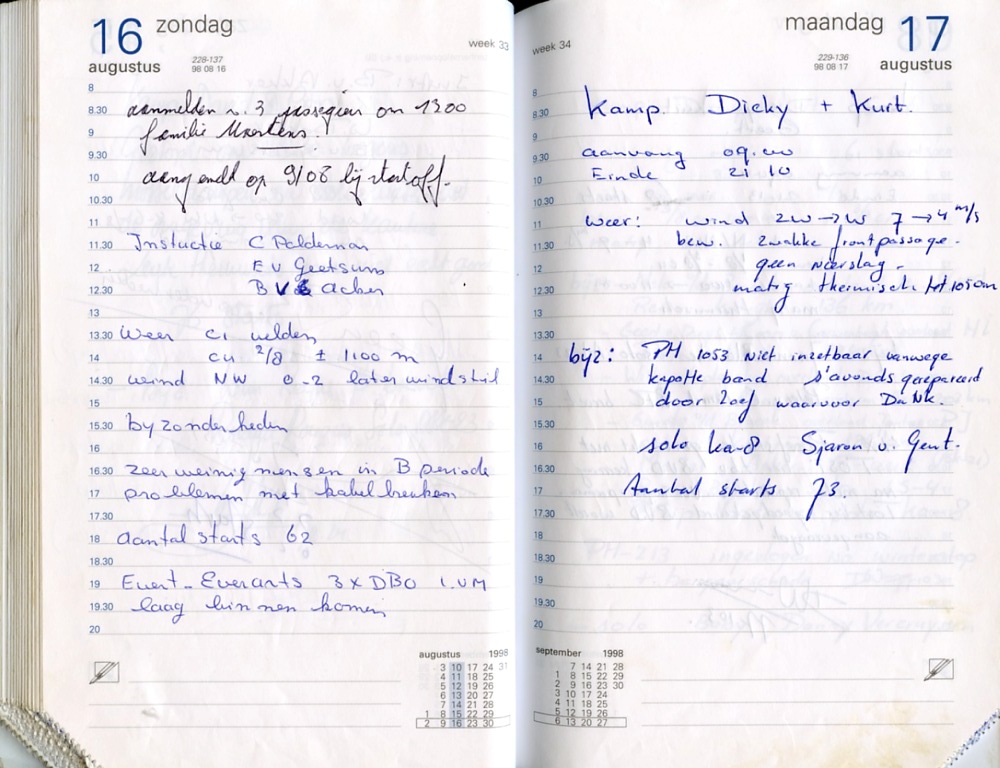 16 zondag
augustus
228-137
98 08 16
week 33
8
8.30 aanmelden v. 3 passagiers om 1300
9 familie
9.30
10 aangemeldt op 9/08 bij startoff.
10.30
11
11.30 Instuctie C Polderman
12 E v Geetsum
12.30 B v Acker
13
13.30 Weer Ci velden
14 cu 2/8 ± 1100 m
14.30 wind NW 0-2 later windstil
15
15.30 byzonderheden
16
16.30 zeer weinig mensen in B periode
17 problemen met kabelbreuken
17.30
18 aantal starts 62
18.30
19 Evert Everarts 3 x DBO i.v.m
19.30 laag binnen komen
20
augustus 1998
3 10 17 24 31
4 11 18 25
5 12 19 26
6 13 20 27
7 14 21 28
1 8 15 22 29
2 9 16 23 30
week 34
maandag 17
229-136
98 08 17
augustus
8
8.30 Kamp. Dicky + Kurt.
9
9.30 aanvang 09.00
10 Einde 21 10
10.30
11 Weer: wind ZW → W 7 → 4 m/s
11.30 bew. zwakke frontpassage.
12 geen neerslag.
12.30 matig thermisch tot 1050m
13
13.30
14 bijz: PH 1053 niet inzetbaar vanwege
14.30 kapotte band s'avonds gerepareerd
15 door Zoef waarvoor Dank.
15.30
16 solo ka-8 Sjaron v. Gent.
16.30
17 Aantal starts 73.
17.30
18
18.30
19
19.30
20
september 1998
7 14 21 28
1 8 15 22 29
2 9 16 23 30
3 10 17 24
4 11 18 25
5 12 19 26
6 13 20 27